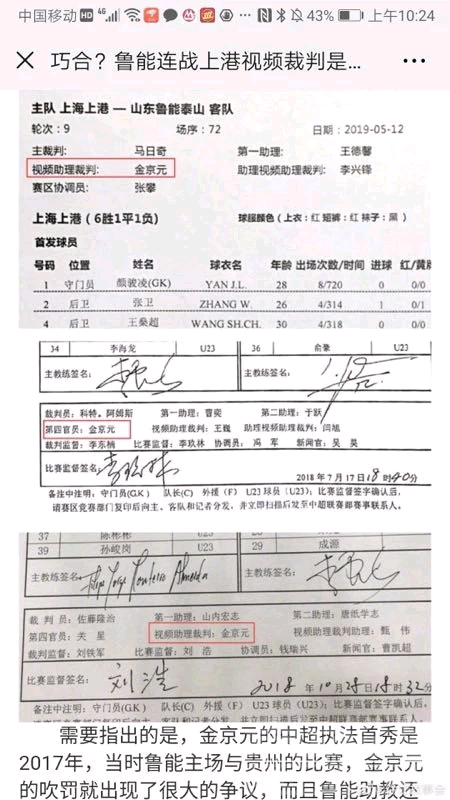 中国移动 HD 46 43% 上午10:24
巧合？鲁能连战上港视频裁判是...
主队 上海上港 — 山东鲁能泰山 客队
轮次：9 场序：72 日期：2019-05-12
主裁判： 马日奇 第一助理： 王德馨
视频助理裁判： 金京元 助理视频助理裁判： 李兴锋
赛区协调员： 张攀
上海上港（6胜1平1负） 球服颜色（上衣：红 短裤：红 袜子：黑）
首发球员
号码 位置 姓名 球衣名 年龄 出场次数/时间 进球 红/黄牌
1 守门员 颜骏凌(GK) YAN J.L. 28 8/720 0 0/0
2 后卫 张卫 ZHANG W. 26 4/314 1 0/1
4 后卫 王燊超 WANG SH.CH. 30 4/318 0 0/0
34 李海龙 U23 36 俞豪 U23
主教练签名： 主教练签名：
裁判员：科特。阿姆斯 第一助理：曹奕 第二助理：于跃
第四官员：金京元 视频助理裁判：王巍 助理视频助理裁判：闫旭
裁判监督：李东楠 比赛监督：李玖林 协调员：冯军 新闻官：吴昊
比赛监督签名： 2018年7月17日18时40分
备注中注明，守门员(G.K) 队长(C) 外援（F）U23球员(U23)；比赛监督签字确认后，
请赛区竞赛部门复印后向主、客队和记者分发，并立即扫描后发至中超联赛部赛事联系人。
37 陈彬彬 U23
39 孙峻岗 U23 29 成源
主教练签名： 主教练签名：
裁 判 员：佐藤隆治 第一助理：山内宏志 第二助理：唐纸学志
第四官员：关 星 视频助理裁判：金京元 视频助理裁判助理：甄 伟
裁判监督：刘铁军 比赛监督：刘 浩 协调员：钱瑞兴 新闻官：曹凯超
比赛监督签名： 刘浩 2018年10月28日18时32分
备注中注明：守门员(G.K) 队长(C) 外援(F) U23球员(U23)；比赛监督签字确认后，
需要指出的是，金京元的中超执法首秀是
2017年，当时鲁能主场与贵州的比赛，金京元
的吹罚就出现了很大的争议，而且鲁能助教还